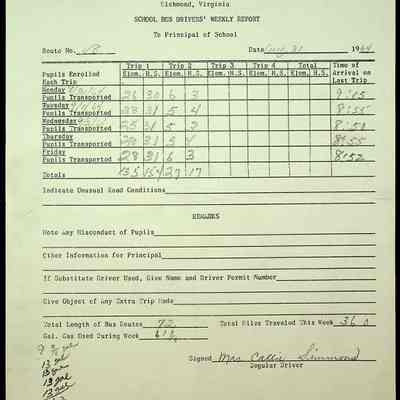 Richmond, Virginia
SCHOOL BUS DRIVERS' WEEKLY REPORT
To Principal of School
Route No. Date Aug 31 1964
Trip 1 Trip 2 Trip 3 Trip 4 Total Time of
Pupils Enrolled Elem. H.S. Elem. H.S. Elem. H.S. Elem. H.S. Elem. H.S. Arrival on
Each Trip Last Trip
Monday
Pupils Transported 26 30 6 3 9:05
Tuesday
Pupils Transported 31 5 4 8:55
Wednesday
Pupils Transported 25 31 5 3 8:50
Thursday
Pupils Transported 31 5 4 8:55
Friday
Pupils Transported 28 31 6 3 8:52
Totals 135 154 27 17
Indicate Unusual Road Conditions
REMARKS
Note Any Misconduct of Pupils
Other Information for Principal
If Substitute Driver Used, Give Name and Driver Permit Number
Give Object of Any Extra Trip Made
Total Length of Bus Routes 72 Total Miles Traveled This Week 360
Gal. Gas Used During Week
Signed Mrs Callie Simmond
Regular Driver
13 gal
13 gal
13 gal